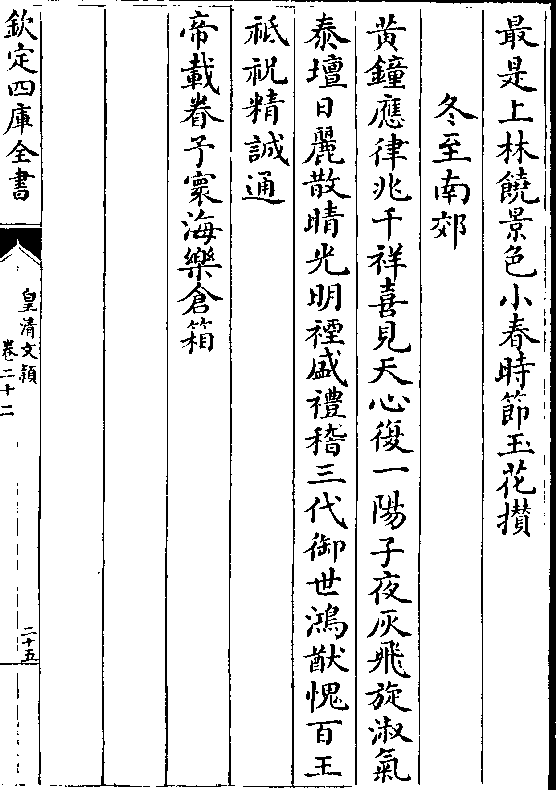 最是上林饒景色小春時節玉花攢
冬至南郊
黃鐘應律兆千祥喜見天心復一陽子夜灰飛旋淑氣
泰壇日麗散晴光明禋盛禮稽三代御世鴻猷愧百王
祗祝精誠通
帝載眷予寰海樂倉箱
欽定四庫全書
皇清文頴
卷二十二
二十五